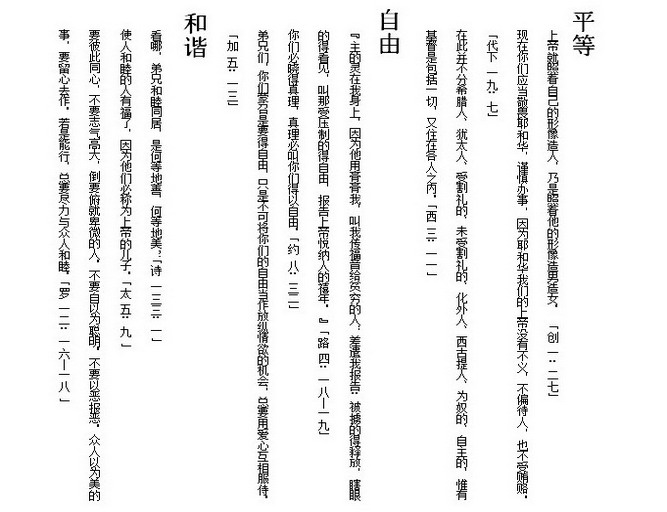 平等
上帝就照着自己的形像造人，乃是照着他的形像造男造女。「创 一：二七」
现在你们应当敬畏耶和华，谨慎办事，因为耶和华我们的上帝没有不义，不偏待人，也不受贿赂。
「代下 一九：七」
在此并不分希腊人，犹太人，受割礼的，未受割礼的，化外人，西古提人，为奴的，自主的，惟有
基督是包括一切，又住在各人之内。「西 三：一一」
自由
『主的灵在我身上，因为他用膏膏我，叫我传福音给贫穷的人，差遣我报告：被掳的得释放，瞎眼
的得看见，叫那受压制的得自由，报告上帝悦纳人的禧年。』「路 四：一八—一九」
你们必晓得真理，真理必叫你们得以自由。「约 八：三二」
弟兄们，你们蒙召是要得自由，只是不可将你们的自由当作放纵情欲的机会，总要用爱心互相服侍。
「加 五：一三」
和谐
看哪，弟兄和睦同居，是何等地善，何等地美！「诗 一三三：一」
使人和睦的人有福了，因为他们必称为上帝的儿子。「太 五：九」
要彼此同心，不要志气高大，倒要俯就卑微的人。不要自以为聪明。不要以恶报恶，众人以为美的
事，要留心去作。若是能行，总要尽力与众人和睦。「罗 一二：一六—一八」